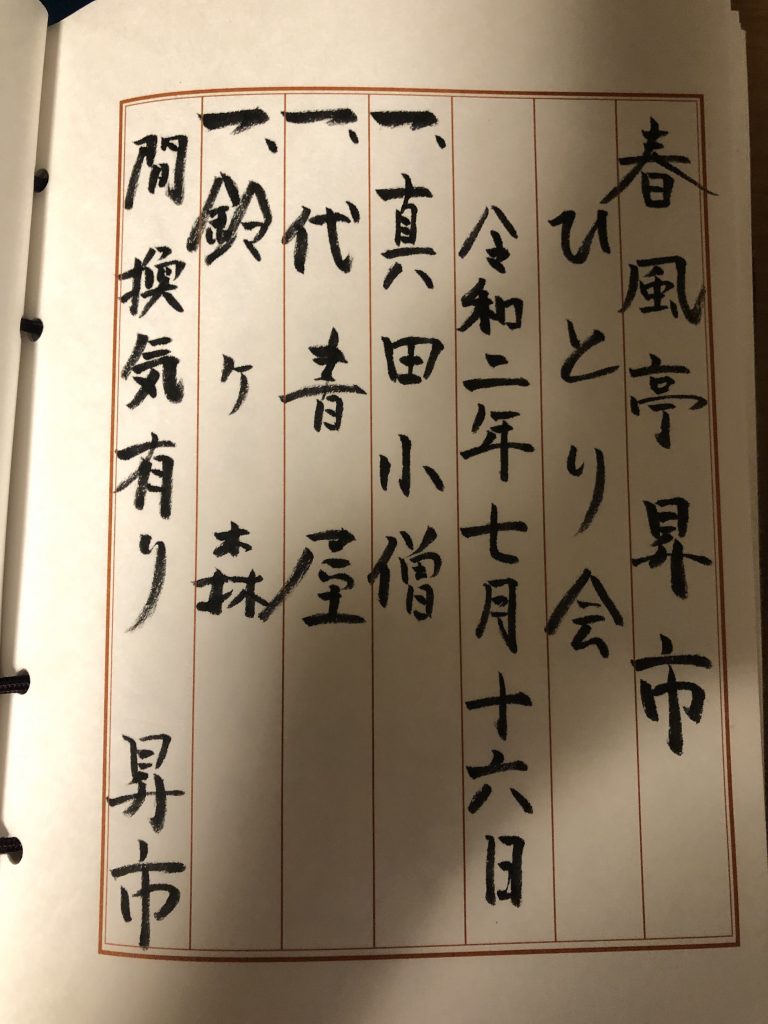 春風亭昇市
ひとり会
令和二年七月十六日
一、真田小僧
一、代書屋
一、鈴ヶ森
間換気有り 昇市